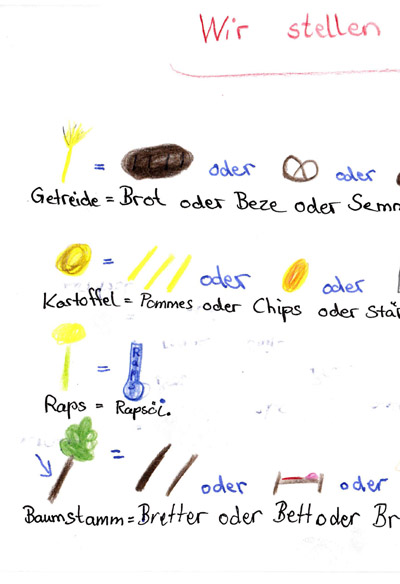 Wir stellen
= oder oder
Getreide = Brot oder Beze oder Sem
= oder oder
Kartoffel = Pommes oder Chips oder Stä
= Raps
Raps = Rapsöl.
= oder oder
Baumstamm = Bretter oder Bett oder Br